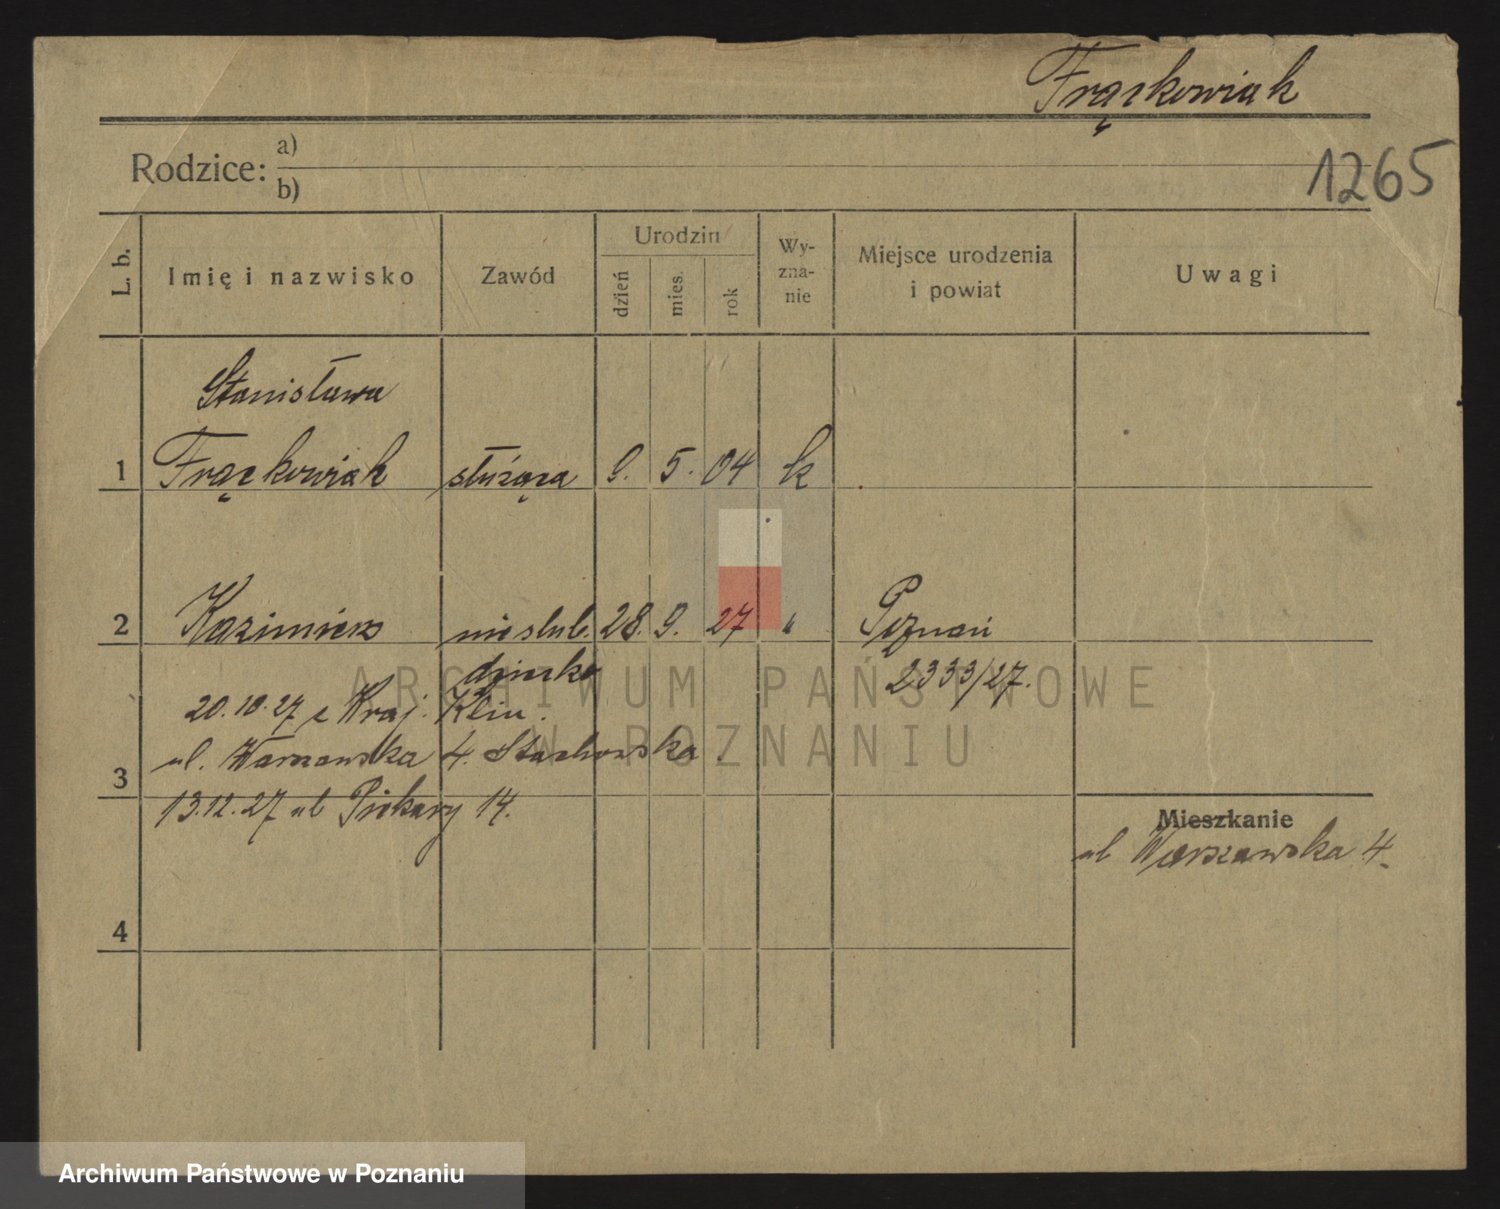 Frąckowiak
1265
Rodzice: a)
b)
L. b.
Imię i nazwisko
Zawód
Urodzin
dzień
mies.
rok
Wy-
zna-
nie
Miejsce urodzenia
i powiat
Uwagi
Stanisława
1 Frąckowiak służąca 9. 5. 04 k
2 Kazimierz nieślub. 28. 9. 27 " Poznań
dziecko 2333/27.
20.10.27 z Kraj. Klin.
ul. Warszawska 4. Stachowska.
3
13.12.27 ul Piekary 14.
Mieszkanie
ul Warszawska 4.
4
ARCHIWUM PAŃSTWOWE
W POZNANIU
Archiwum Państwowe w Poznaniu